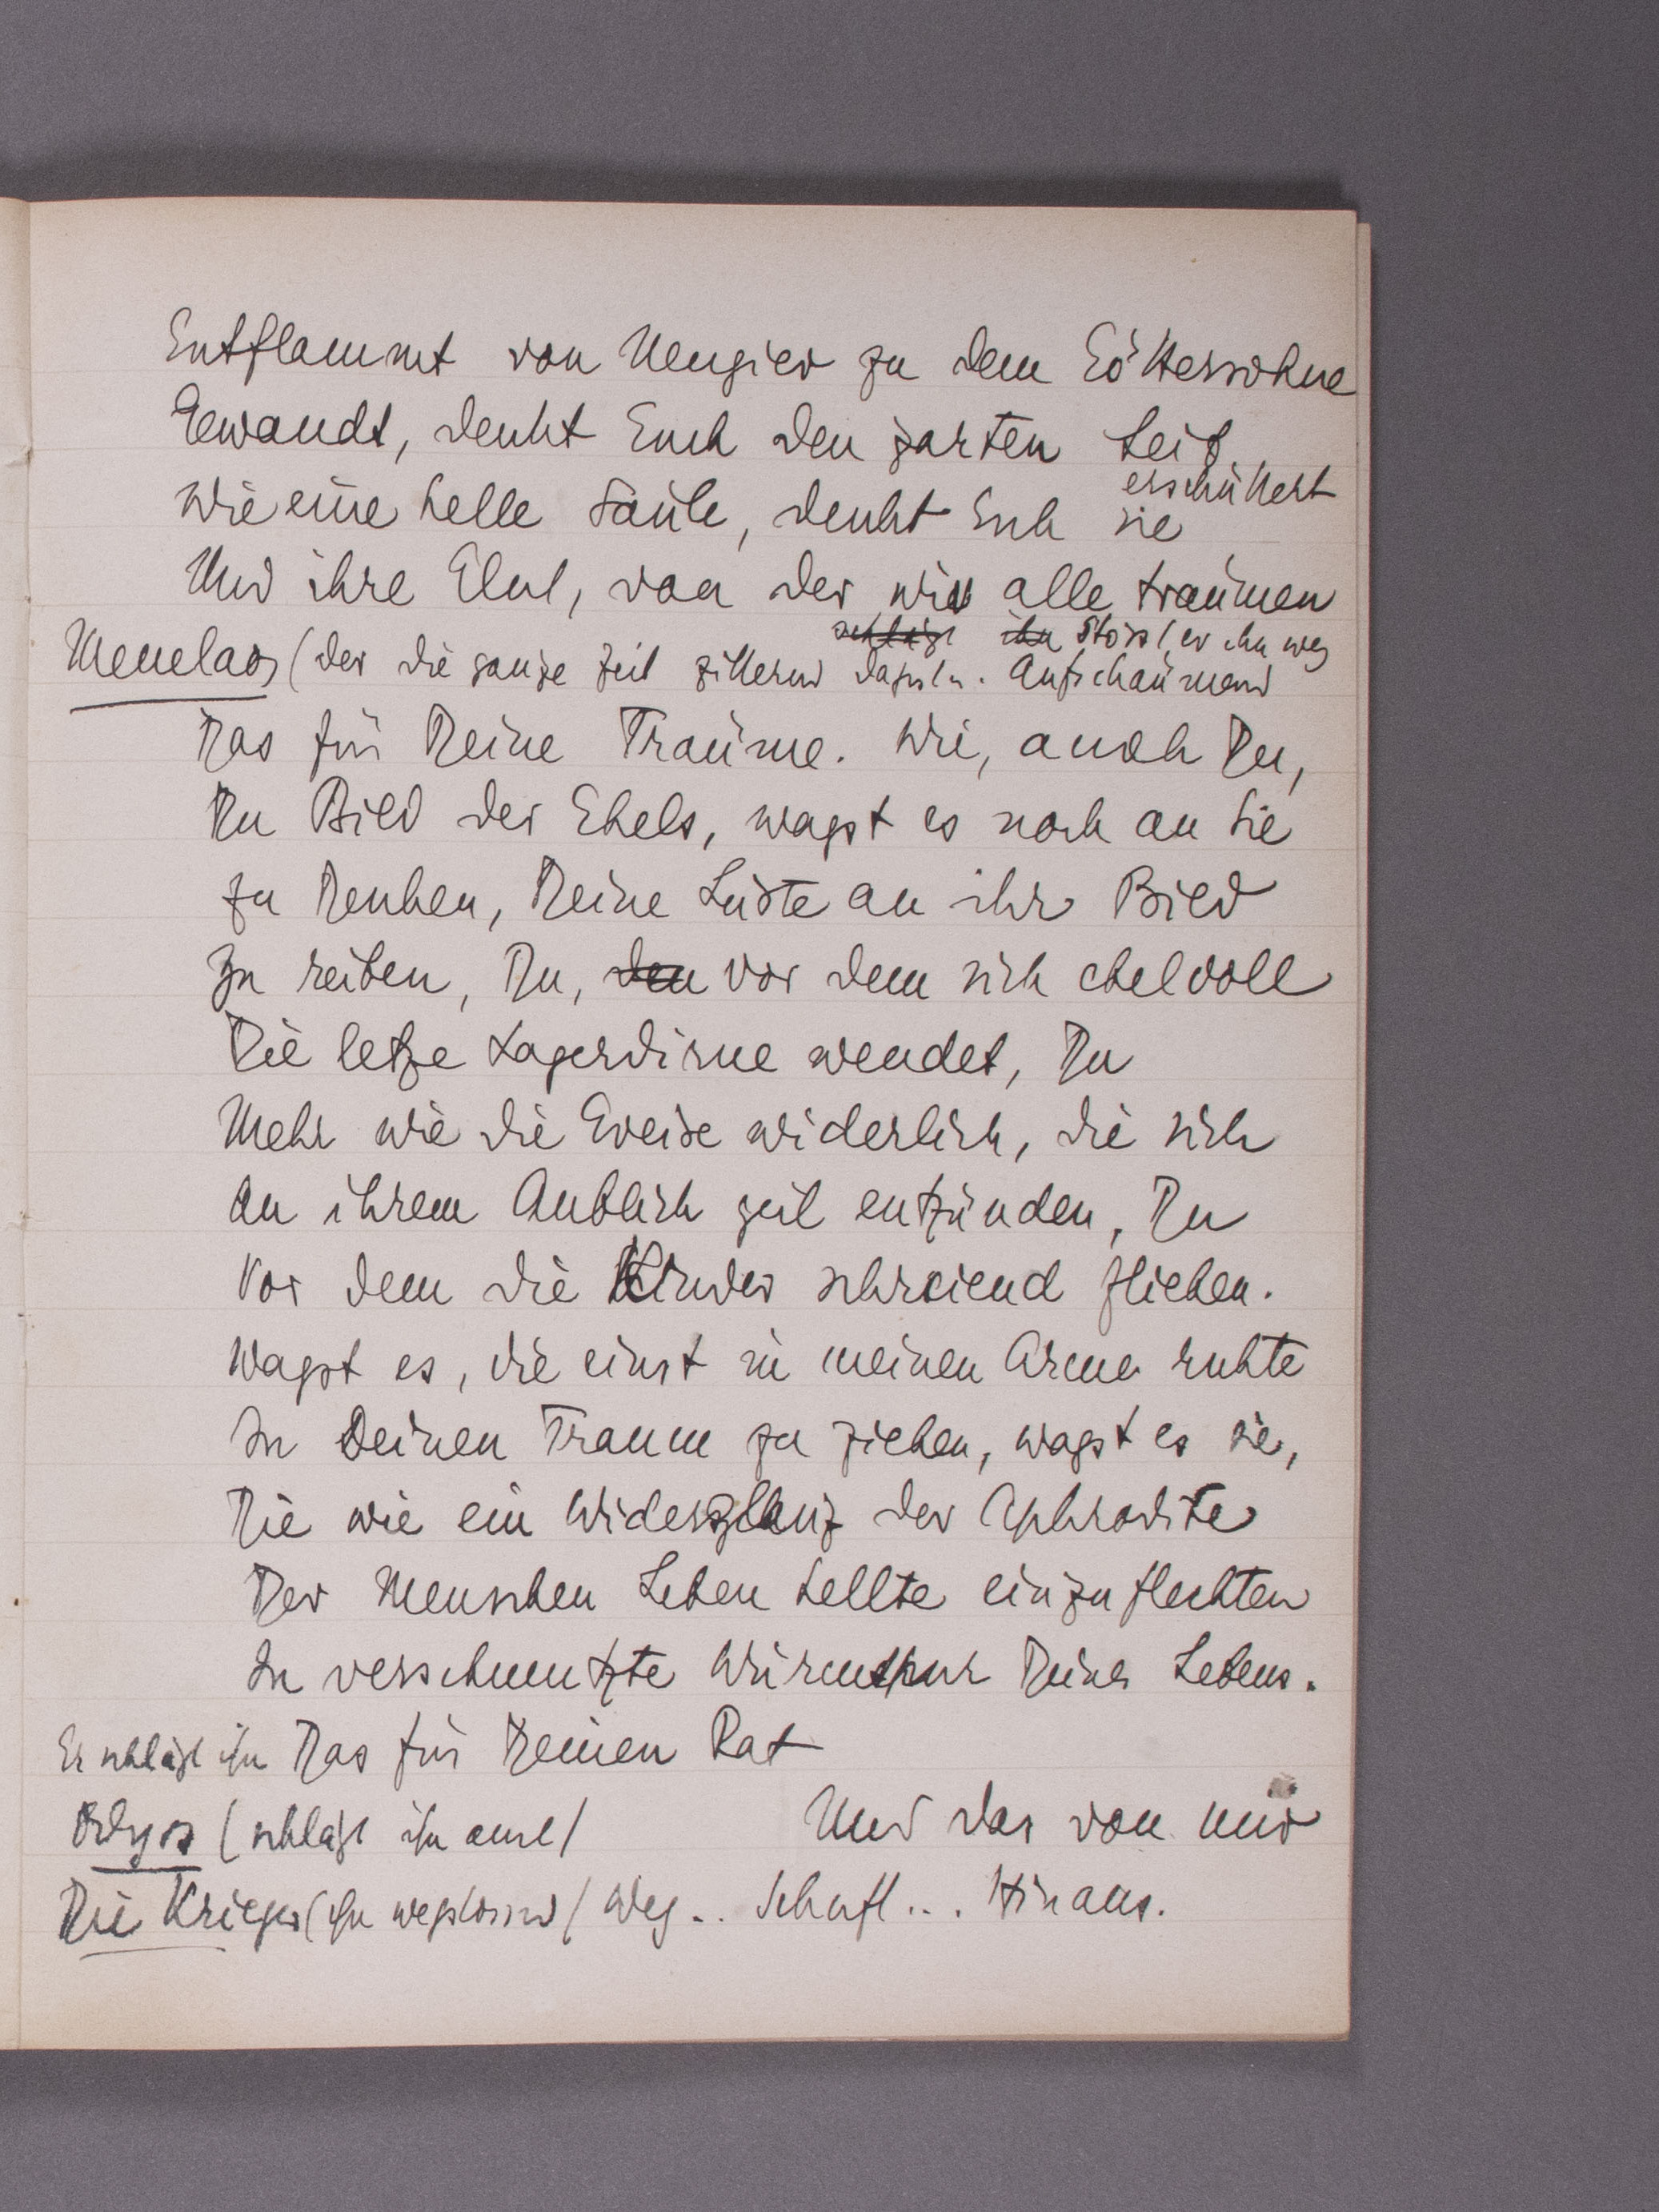 Entflammt von Neugier zu dem Göttersohne
Gewandt, denkt Euch den zarten Leib
erschüttert
Wie eine helle Säule, denkt Euch sie
Und ihre Glut, von der wir alle träumen
schlägt ihn Stösst er ihn weg
Menelaos (der die ganze Zeit zitternd Aufschäumend
Das für Deine Träume. Wie, auch Du,
Du Bild des Ekels, wagst es noch an Sie
Zu Denken, Deine Lüste an ihr Bild
Zu reiben, Du, den vor dem sich ekelvoll
Die letze Lagerdirne wendet, Du
Mehr wie die Greise widerlich, die sich
An ihrem Anblick geil entzünden, Du
Vor dem die Kinder schreiend fliehen.
Wagst es, die einst in meinen Armen ruhte
In Deinen Traum zu ziehen, wagst es sie,
Die wie ein Widerglanz der Aphrodite
Der Menschen Leben hellte einzuflechten
In verschmutzte Wurmspur Deines Lebens.
Er schlägt ihn Das für Deinen Rat
Odyss (schlägt ihn auch) Und das von mir
Die Krieger (ihn wegstossend) Weg .. Schuft ... Hinaus.